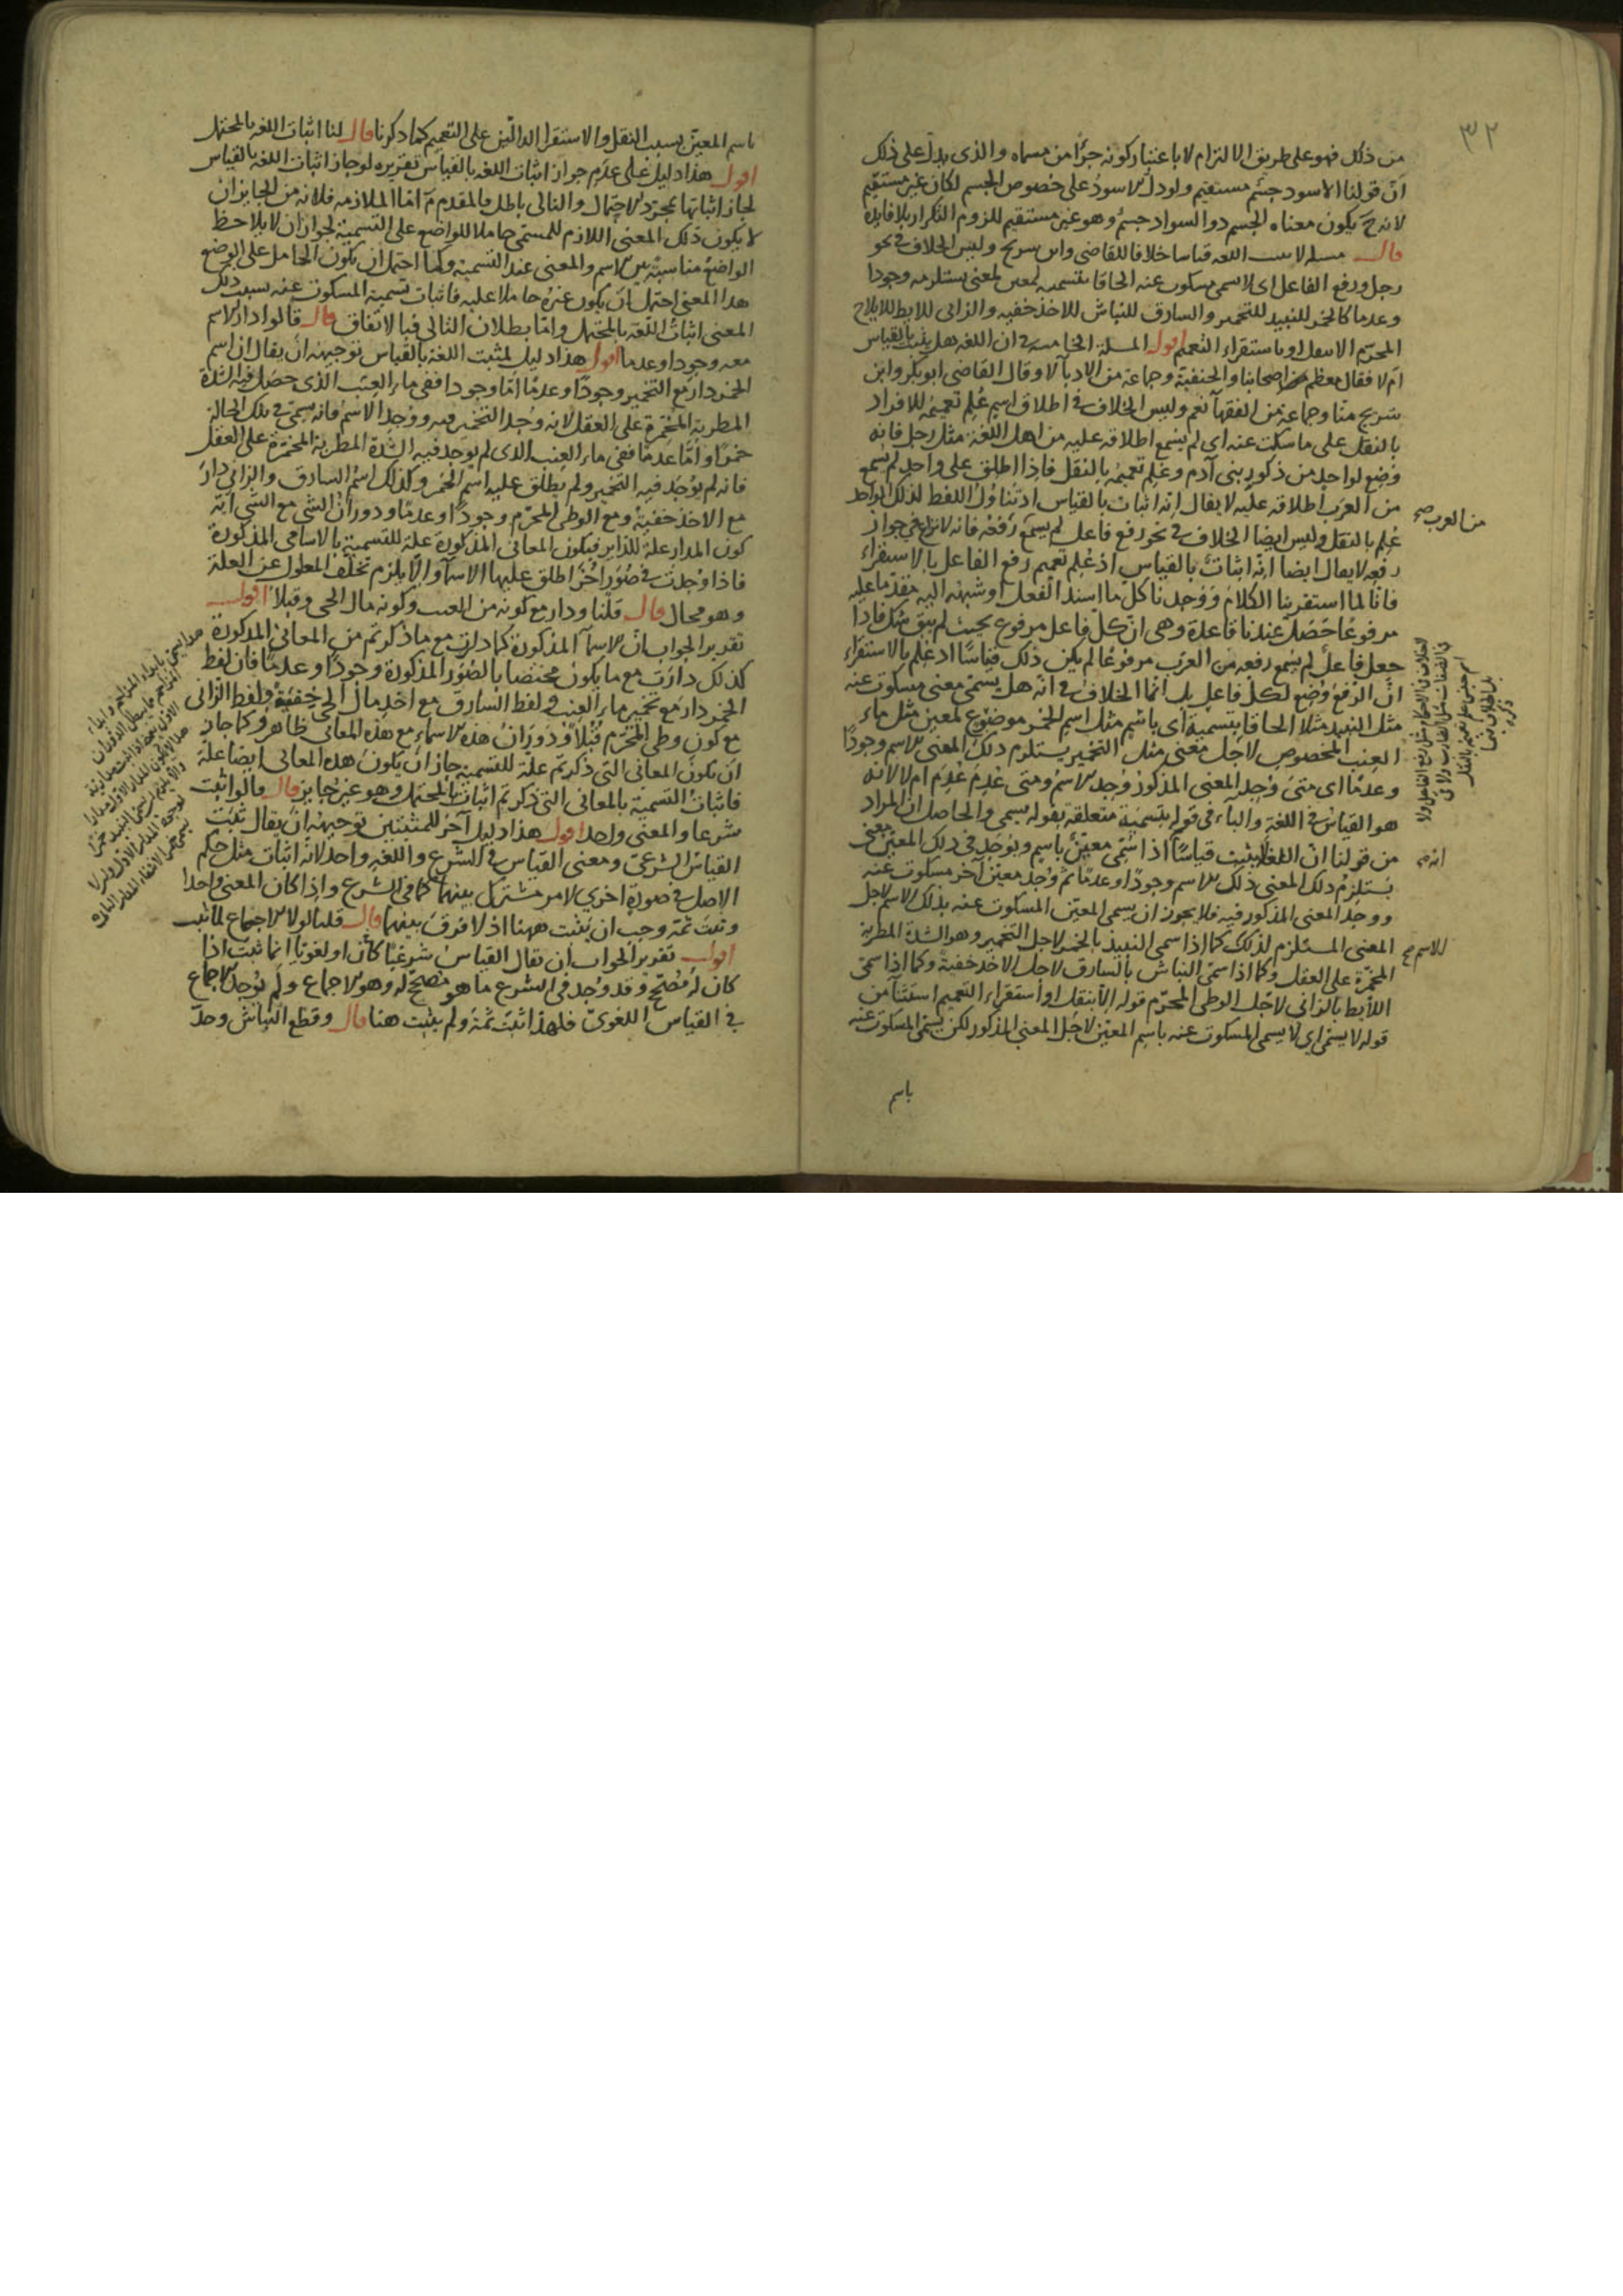 ٣٢
من ذلك فهو على طريق الالتزام لا باعتبار كونه جزءا من مسماه والذي يدل على ذلك
ان قولنا الاسود جسم مستقيم ولو دل الاسود على خصوص الجسم لكان غير مستقيم
لانه ح يكون معناه الجسم ذو السواد جسم وهو غير مستقيم للزوم التكرار بلا فايدة
قال مسلة لا تثبت اللغة قياسا خلافا للقاضي وابن سريج وليس الخلاف في نحو
رجل ورفع الفاعل اي لا يسمى مسكوت عنه الحاقا بتسمية لمعين لمعنى يستلزمه وجودا
وعدما كالخمر للنبيذ للتخمير والسارق للنباش للاخذ خفية والزاني للايط للايلاج
المحرم الا بنقل او باستقراء التعميم اقول المسلة الخامسة في ان اللغة هل يثبت بالقياس
ام لا فقال معظم اصحابنا والحنفية وجماعة من الادبآ لا وقال القاضي ابو بكر وابن
سريج منا وجماعة من الفقهآ نعم وليس الخلاف في اطلاق اسم علم تعميمه للافراد
بالنقل على ما سكت عنه اي لم يسمع اطلاقه عليه من اهل اللغة مثل رجل فانه
وضع لواحد من ذكور بني آدم وعلم تعميمه بالنقل فاذا اطلق على واحد لم يسمع
من العرب اطلاقه عليه لا يقال انه اثبات بالقياس اذ تناول اللفظ لذلك الواحد
علم بالنقل وليس ايضا الخلاف في نحو رفع فاعل لم يسمع رفعه فانه لا نزاع في جواز
من العرب صح
رفعه لا يقال ايضا انه اثبات بالقياس اذ علم تعميم رفع الفاعل بالاستقراء
فانا لما استقرينا الكلام ووجدنا كل ما اسند الفعل او شبهه اليه مقدما عليه
مرفوعا حصل عندنا قاعدة وهي ان كل فاعل مرفوع بحيث لم يبق شك فاذا
جعل فاعل لم يسمع رفعه من العرب مرفوعا لم يكن ذلك قياسا اذ علم بالاستقراء
ان الرفع وضع لكل فاعل بل انما الخلاف في انه هل يسمى معنى مسكوت عنه
مثل النبيذ مثلا الحاقا بتسمية اي باسم مثل اسم الخمر موضوع لمعين مثل ماء
العنب المخصوص لاجل معنى مثل التخمير يستلزم ذلك المعنى الاسم وجودا
وعدما اي متى وجد المعنى المذكور وجد الاسم ومتى عدم عدم ام لا لانه
هو القياس في اللغة والبآء في قوله بتسمية متعلقة بقوله يسمى والحاصل ان المراد
من قولنا ان اللغة لا يثبت قياسا اذا سمي معين باسم ويوجد في ذلك المعين معنى
انه صح
يستلزم ذلك المعنى ذلك الاسم وجودا وعدما ثم وجد معين آخر مسكوت عنه
ووجد المعنى المذكور فيه فلا يجوز ان يسمى المعين المسكوت عنه بذلك الاسم لاجل
المعنى المستلزم لذلك كما اذا سمي النبيذ بالخمر لاجل التخمير وهو الشدة المطربة
للاسم صح
المخمرة على العقل وكما اذا سمي النباش بالسارق لاجل الاخذ خفية وكما اذا سمي
اللايط بالزاني لاجل الوطي المحرم قوله الا بنقل او استقراء التعميم استثنآ من
قوله لا يسمى اي لا يسمى المسكوت عنه باسم المعين لاجل المعنى المذكور لكن يسمى المسكوت عنه
باسم
باسم المعين بسبب النقل والاستقرا الدالين على التعميم كما ذكرنا قال لنا اثبات اللغة بالمحتمل
اقول هذا دليل على عدم جواز اثبات اللغة بالقياس تقريره لو جاز اثبات اللغة بالقياس
لجاز اثباتها بمجرد الاحتمال والتالي باطل فالمقدم م اما الملازمة فلانه من الجايز ان
لا يكون ذلك المعنى اللازم للمسمى حاملا للواضع على التسمية لجواز ان لا يلاحظ
الواضع مناسبة بين الاسم والمعنى عند التسمية وكما احتمل ان يكون الحامل على الوضع
هذا المعنى احتمل ان يكون غيره حاملا عليه فاثبات تسمية المسكوت عنه بسبب ذلك
المعنى اثبات اللغة بالمحتمل واما بطلان التالي فبالاتفاق قال قالوا دار الاسم
معه وجودا وعدما اقول هذا دليل لمثبت اللغة بالقياس توجيهه ان يقال ان اسم
الخمر دار مع التخمير وجودا وعدما اما وجودا ففي ماء العنب الذي حصل فيه الشدة
المطربة المخمرة على العقل لانه وجد التخمير فيه ووجد الاسم فانه يسمى في تلك الحالة
خمرا واما عدما ففي ماء العنب الذي لم يوجد فيه الشدة المطربة المخمرة على العقل
فانه لم يوجد فيه التخمير ولم يطلق عليه اسم الخمر وكذلك اسم السارق والزاني دار
مع الاخذ خفية ومع الوطي المحرم وجودا وعدما ودوران الشي مع الشي آية
كون المدار علة للداير فيكون المعاني المذكورة علة للتسمية بالاسامي المذكورة
فاذا وجدت في صور اخر اطلق عليها الاسمآ والا يلزم تخلف المعلول عن العلة
وهو محال قال قلنا ودار مع كونه من العنب وكونه مال الحي وقبلا اقول
تقدير الجواب ان الاسمآ المذكورة كما دارت مع ما ذكرتم من المعاني المذكورة
كذلك دارت مع ما يكون مختصا بالصور المذكورة وجودا وعدما فان لفظ
الخمر دار مع تخمير ماء العنب ولفظ السارق مع اخذ مال الحي خفية ولفظ الزاني
مع كون وطي المحرم قبلا ودوران هذه الاسماء مع هذه المعاني ظاهر وكما جاز
ان يكون المعاني التي ذكرتم علة للتسمية جاز ان يكون هذه المعاني ايضا علة
فاثبات التسمية بالمعاني التي ذكرتم اثبات بالمحتمل وهو غير جايز قال قالوا ثبت
شرعا والمعنى واحد اقول هذا دليل آخر للمثبتين توجيهه ان يقال ثبت
القياس الشرعي ومعنى القياس في الشرع واللغة واحد لانه اثبات مثل حكم
الاصل في صورة اخرى لامر مشترك بينهما كما في الشرع واذا كان المعنى واحدا
وثبت ثمة وجب ان يثبت ههنا اذ لا فرق بينهما قال قلنا لولا الاجماع لما ثبت
اقول تقدير الجواب ان يقال القياس شرعيا كان او لغويا انما ثبت اذا
كان له مصحح وقد وجد في الشرع ما هو مصحح له وهو الاجماع ولم يوجد الاجماع
في القياس اللغوي فلهذا اثبت ثمة ولم يثبت هنا قال وقطع النباش وحد